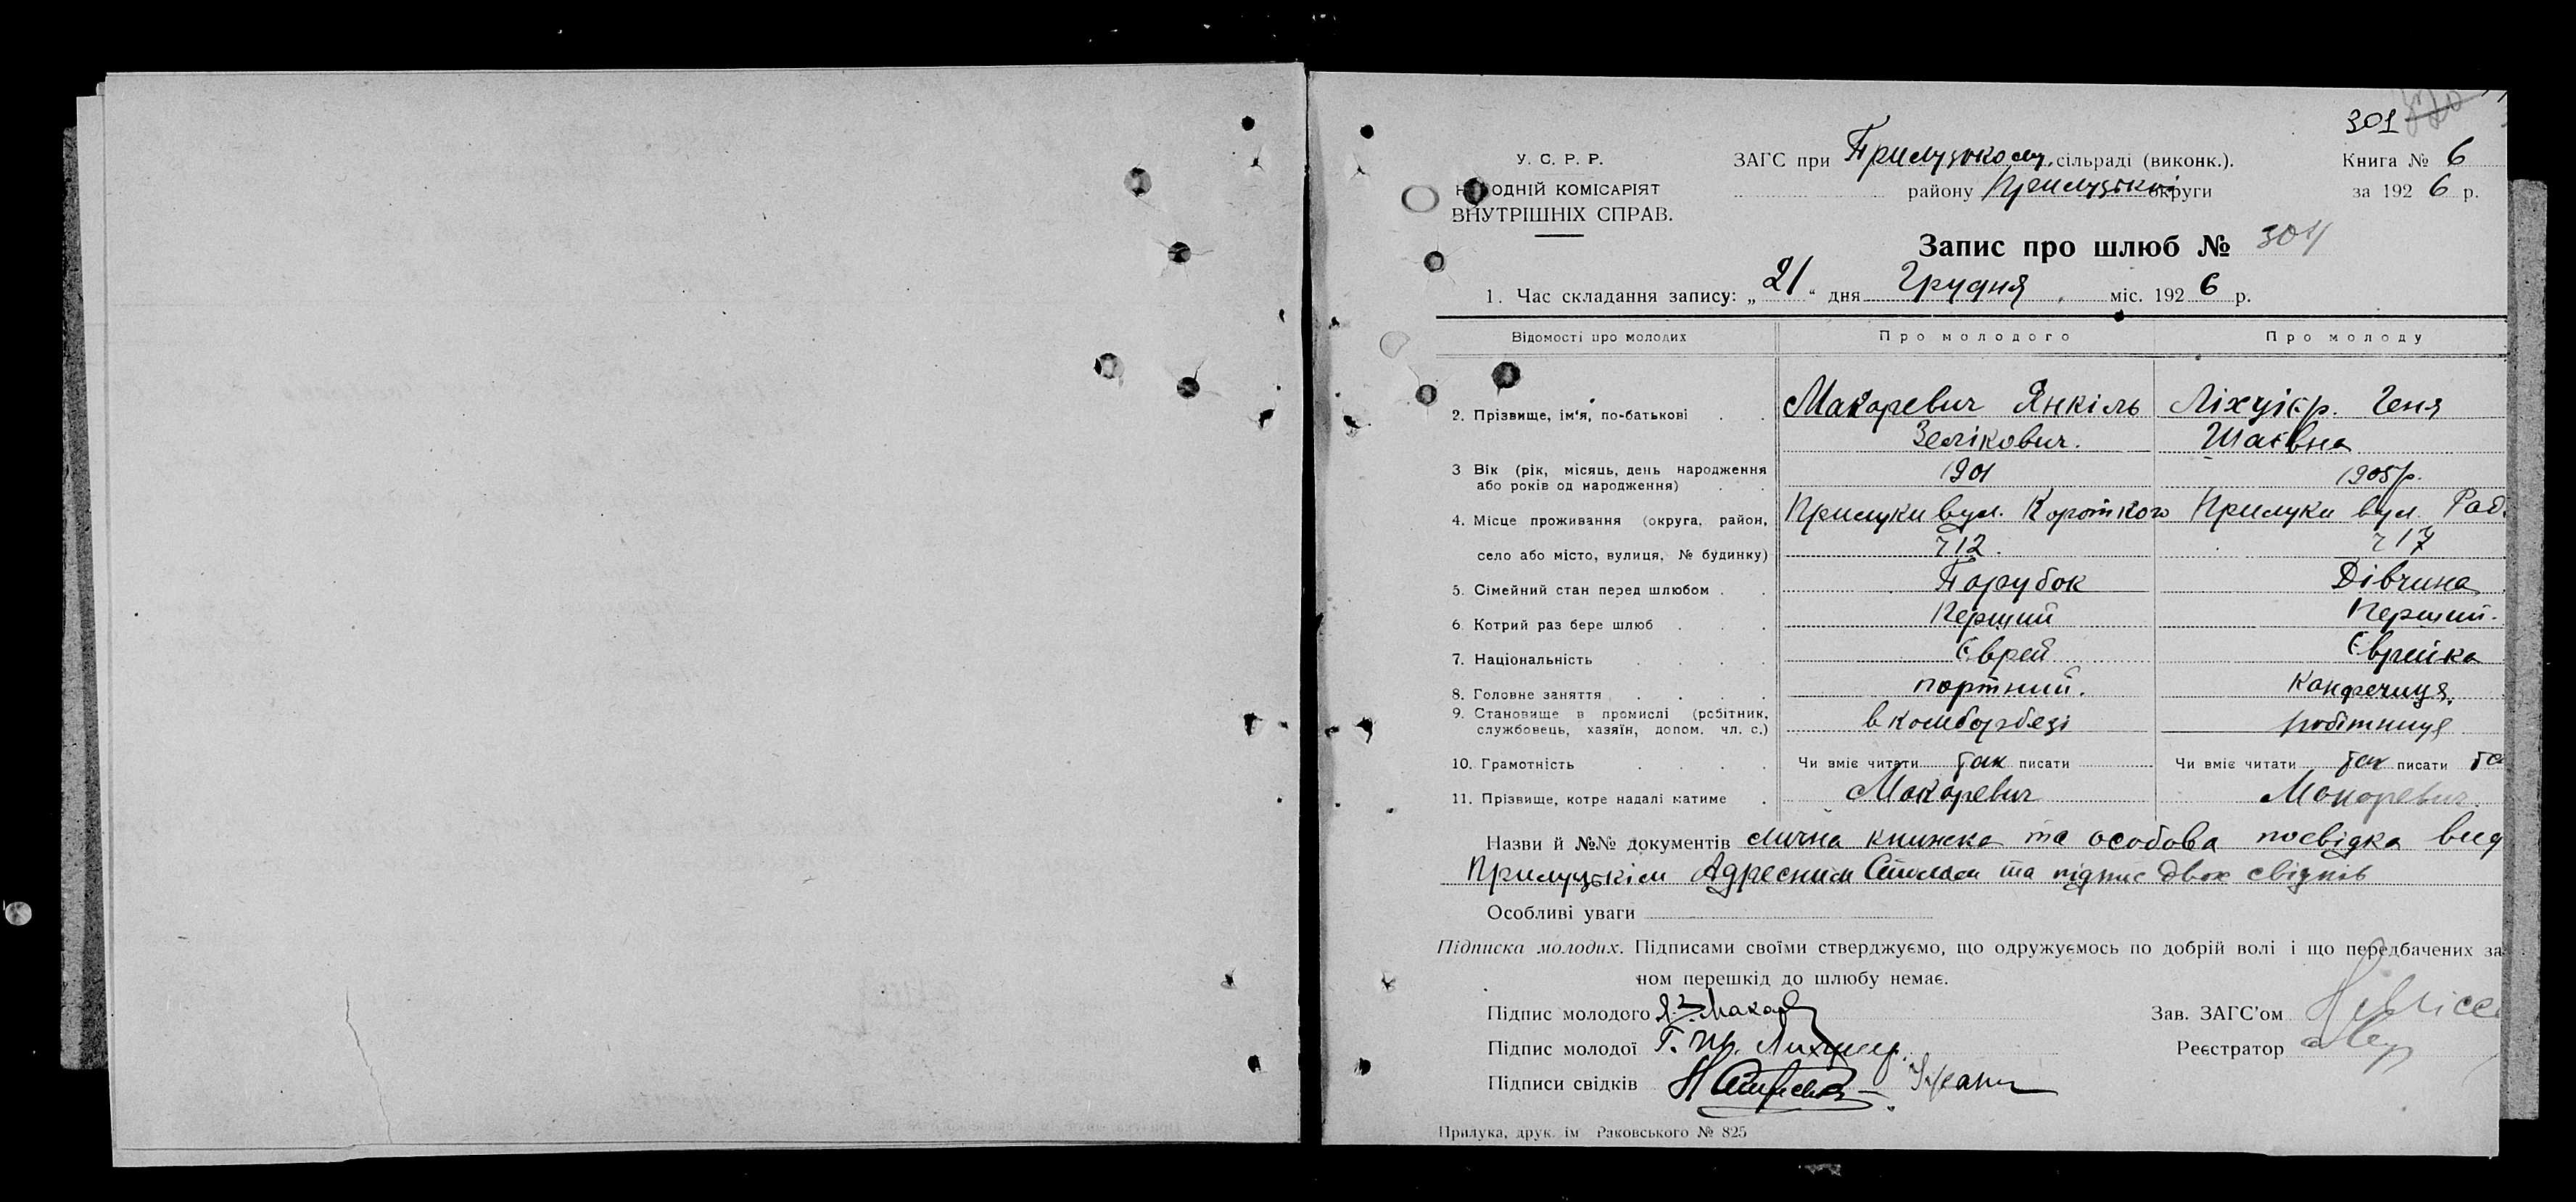 301
У. С. Р. Р.
НАРОДНІЙ КОМІСАРІЯТ
ВНУТРІШНІХ СПРАВ.
ЗАГС при Прилуцькому сільраді (виконк.).
району Прилуцької округи
Книга № 6
за 1926 р.
Запис про шлюб № 301
1. Час складання запису: „21“ дня Грудня міс. 1926 р.
Відомості про молодих Про молодого Про молоду
2. Прізвище, ім'я, по-батькові Макаревич Янкіль Ліхціер. Геня
Зелікович. Шаєвна
3 Вік (рік, місяць, день народження
або років од народження) 1901 1905р.
4. Місце проживання (округа, район, Прилуки вул. Короткого Прилуки вул. Рад
село або місто, вулиця, № будинку) ч 12. ч 17
5. Сімейний стан перед шлюбом Парубок Дівчина
6. Котрий раз бере шлюб Перший Перший.
7. Національність Єврей Єврейка
8. Головне заняття портний. Канфечиця
9. Становище в промислі (робітник,
службовець, хазяїн, допом. чл. с.) в комборбезі робітниця
10. Грамотність Чи вміє читати так писати Чи вміє читати так писати та
11. Прізвище, котре надалі матиме Макаревич Макаревич.
Назви й №№ документів лична книжка та особова посвідка вид
Прилуцькім Адресним Столом та підпис двох свідків
Особливі уваги
Підписка молодих. Підписами своїми стверджуємо, що одружуємось по добрій волі і що передбачених за
ном перешкід до шлюбу немає.
Підпис молодого Я.З. Макар
Зав. ЗАГС'ом
Підпис молодої Г. Ш. Лихциер.
Реєстратор
Підписи свідків
Прилука, друк. ім Раковського № 825